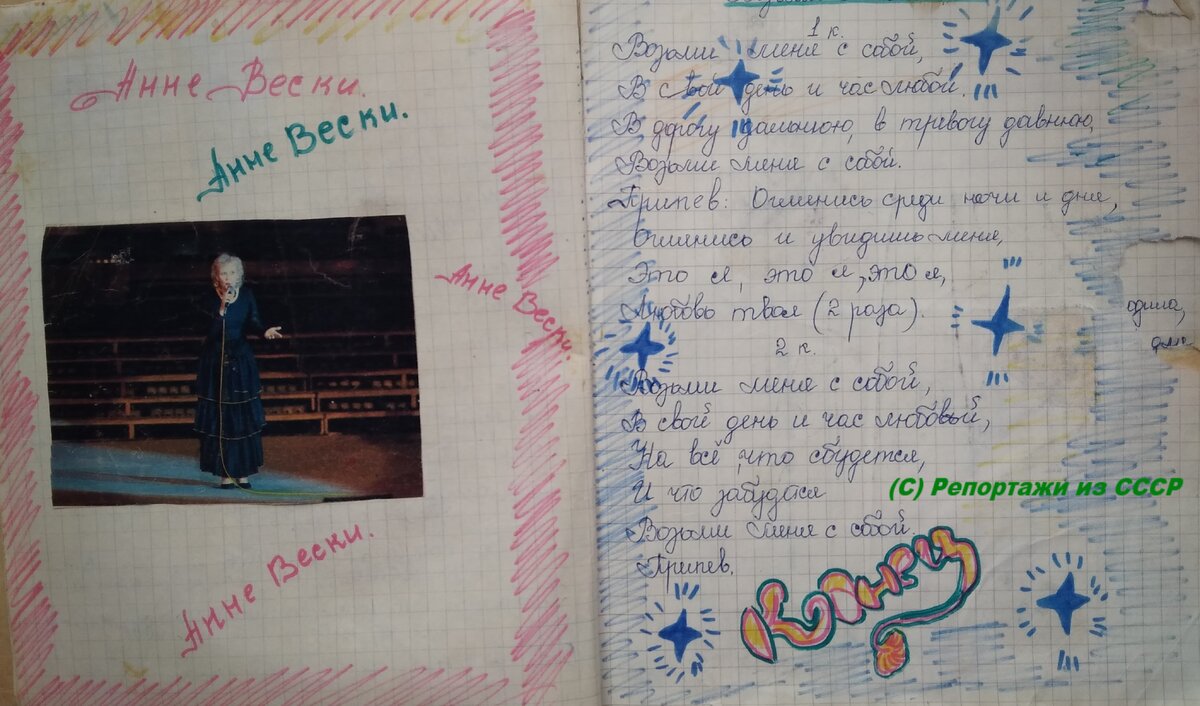 Анне Вески.
Анне Вески.
Анне Вески.
Анне Вески.
1 к.
Возьми меня с собой,
В свой день и час любой.
В дорогу дальнюю, в тревогу давнюю,
Возьми меня с собой.
Припев: Оглянись среди ночи и дня,
Оглянись и увидишь меня,
Это я, это я, это я,
Любовь твоя (2 раза).
2 к.
Возьми меня с собой,
В свой день и час любовый,
На всё, что сбудется,
И что забудется
Возьми меня с собой.
Припев.
Конец
одила,
(С) Репортажи из СССР